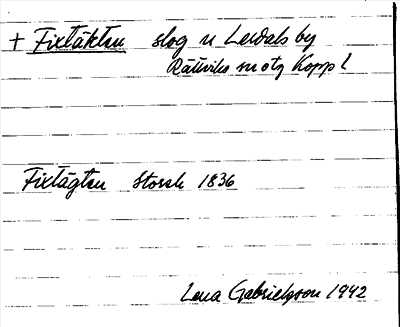 + Fixtäkten skog n Lerdals by
Rättviks sn o tg Kopp l
Fixtägten Storsk 1836
Lena Gabrielsson 1942